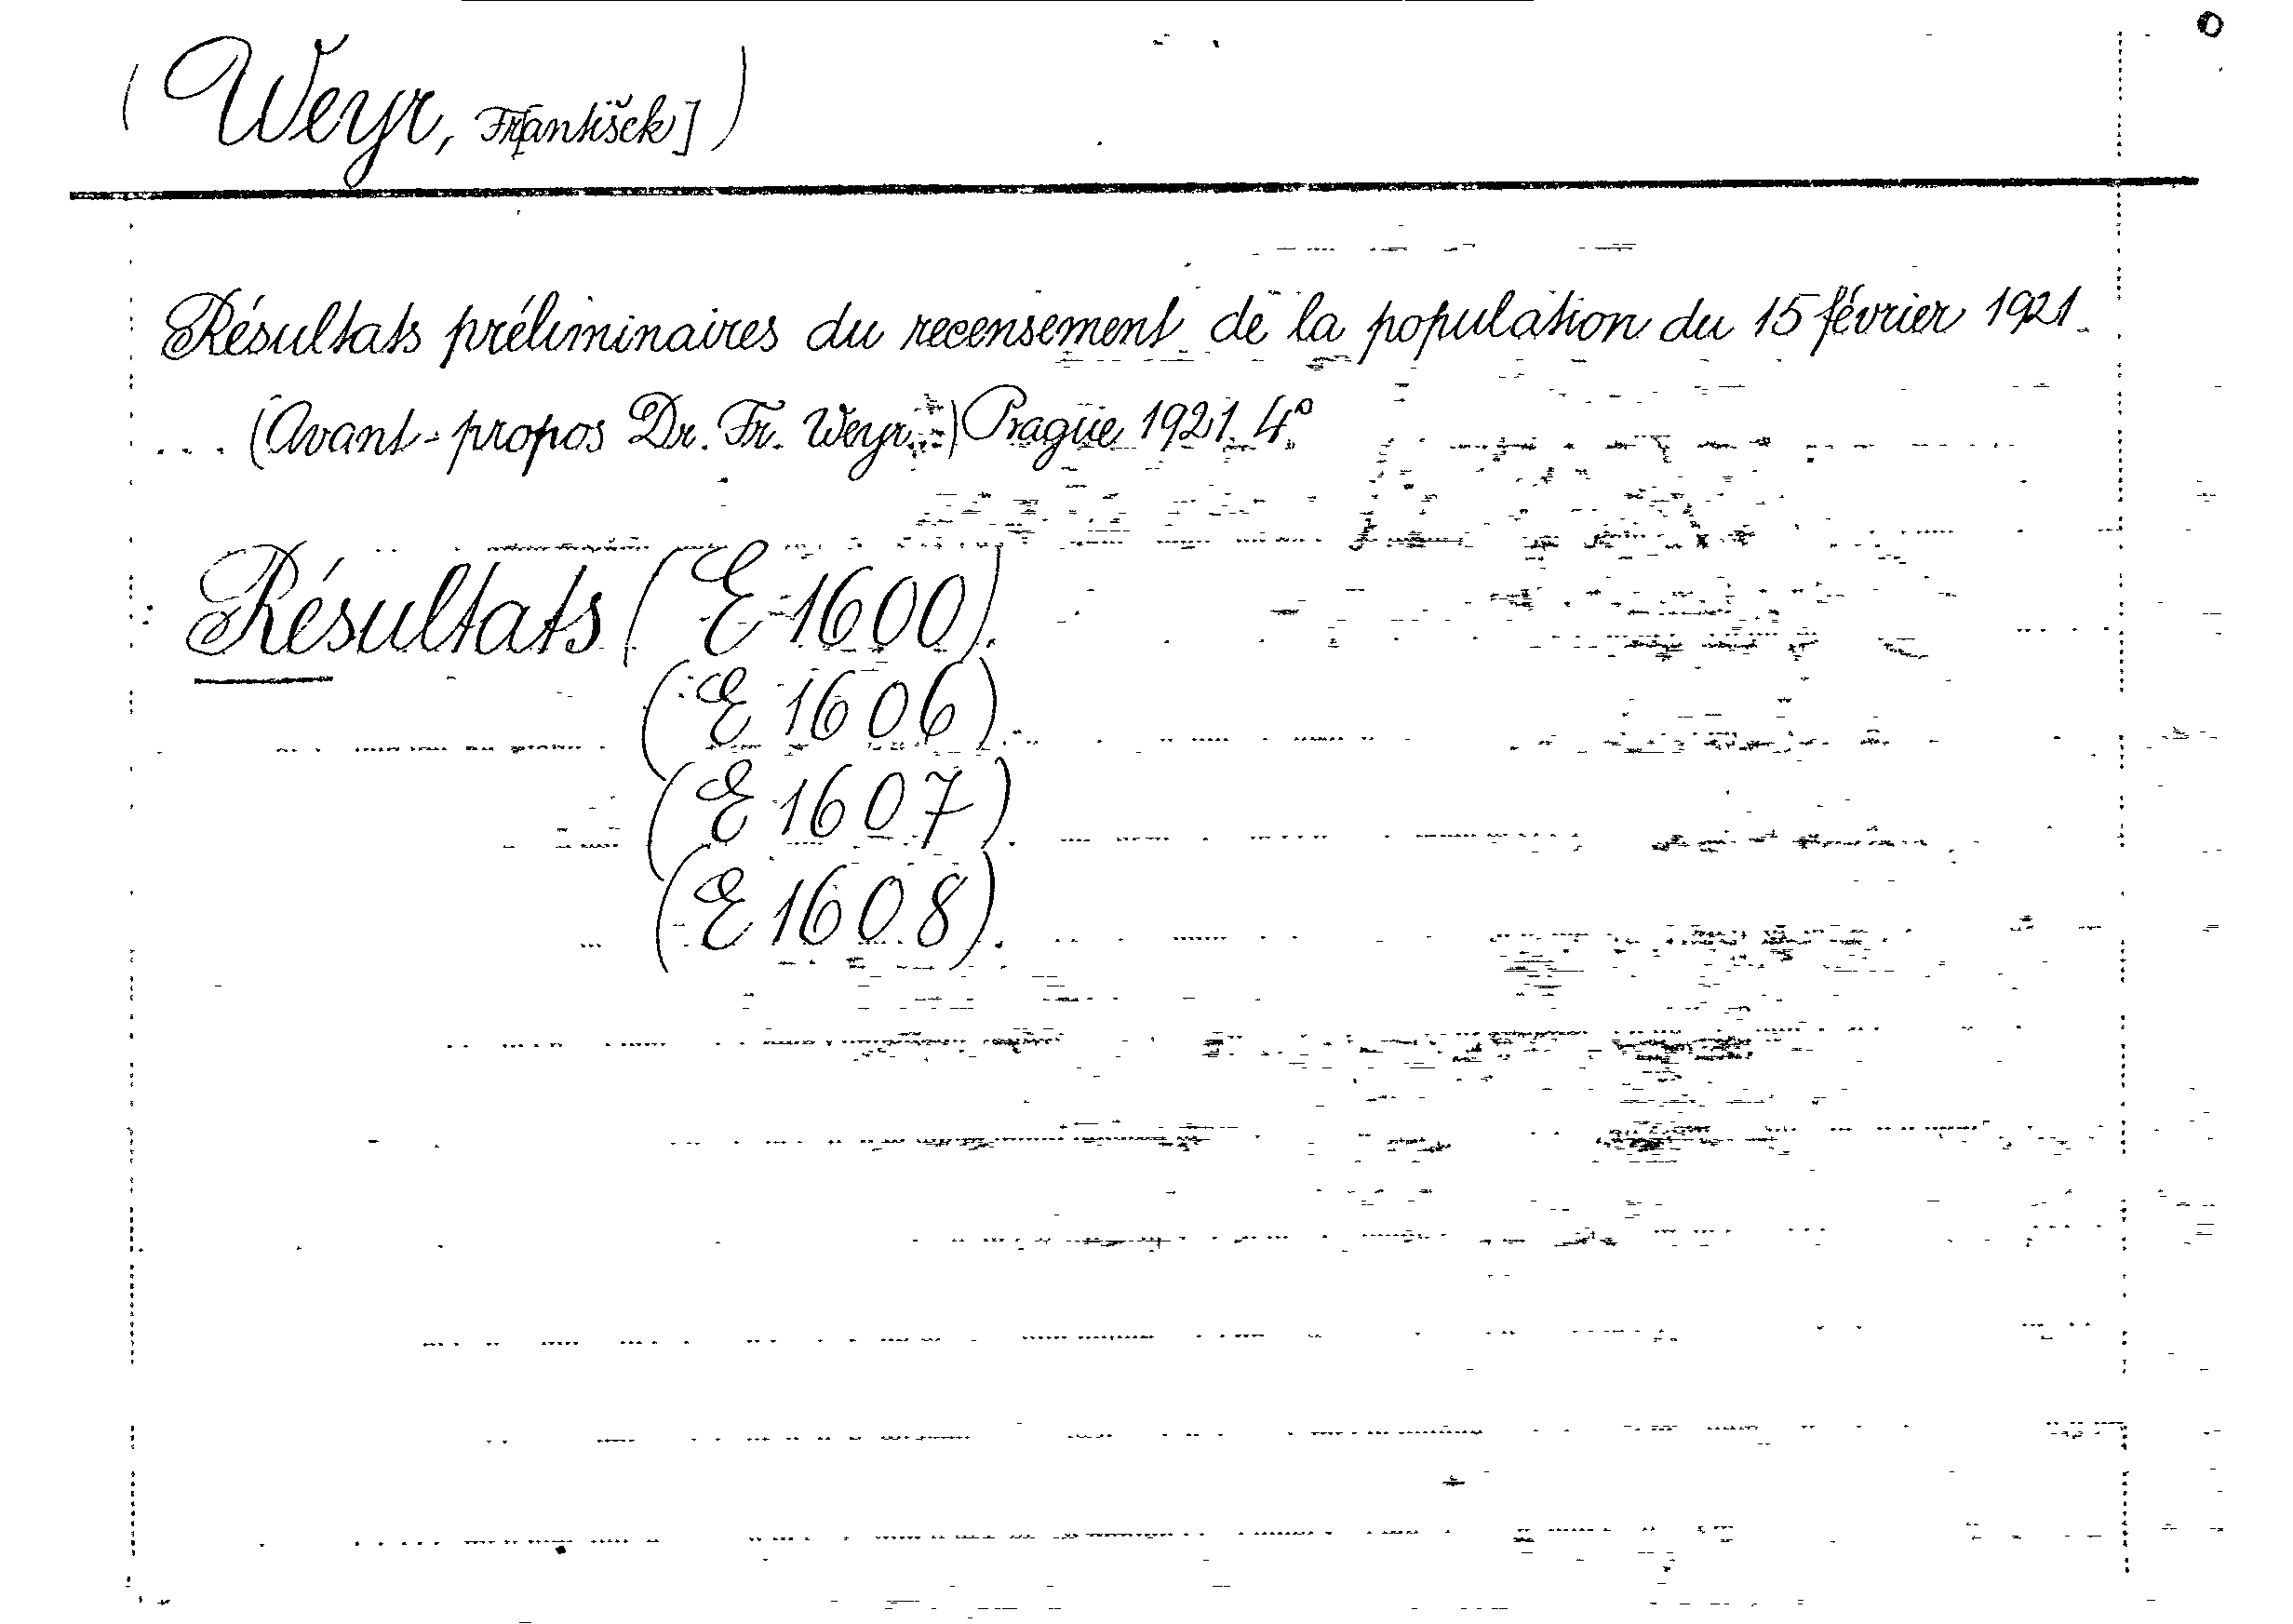 (Weyr, Fr[antišek])
Résultats préliminaires du recensement de la population du 15 février 1921.
... (Avant-propos Dr. Fr. Weyr.) Prague 1921. 4°
: Résultats (E 1600).
(E 1606).
(E 1607).
(E 1608).